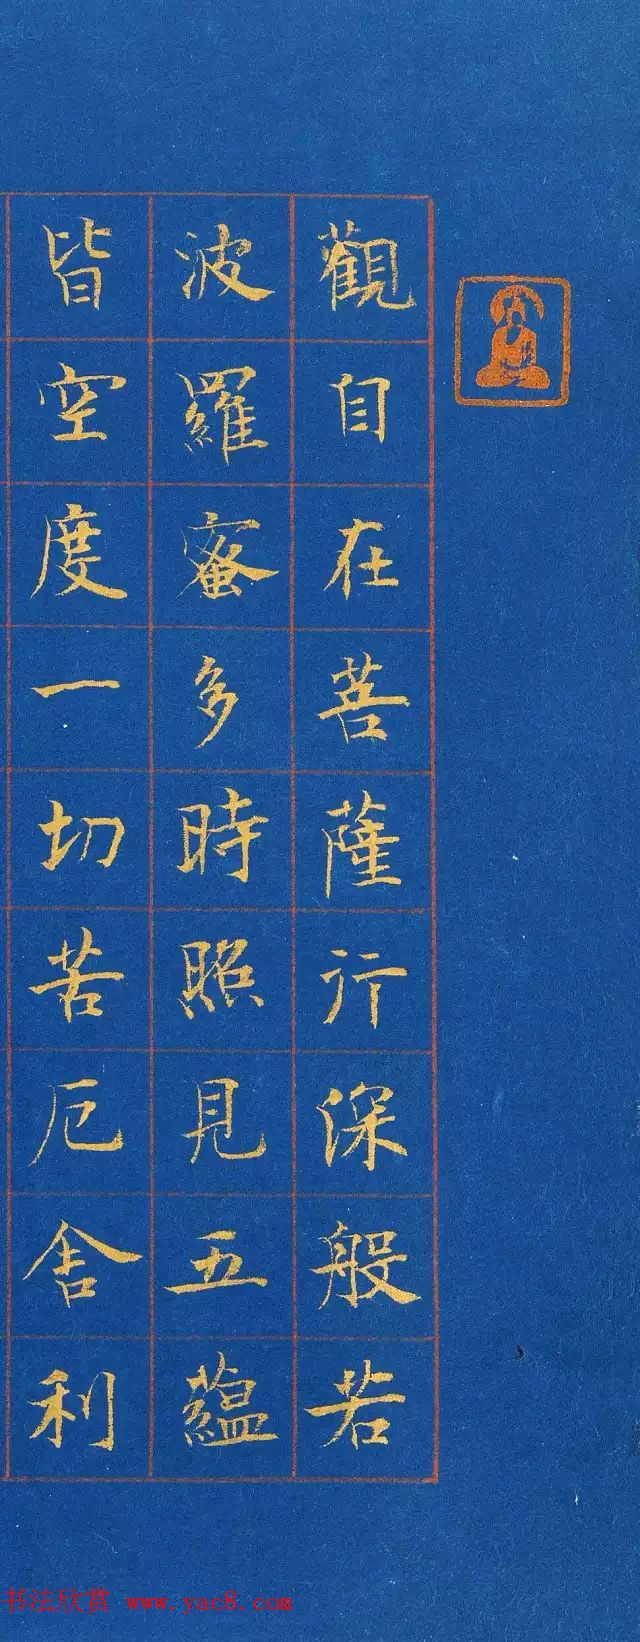 觀自在菩薩行深般若
波羅蜜多時照見五蘊
皆空度一切苦厄舍利
书法欣赏 www.yac8.com